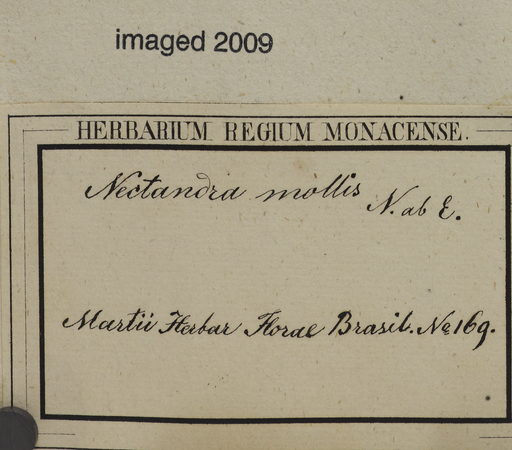 imaged 2009
HERBARIUM REGIUM MONACENSE.
Nectandra mollis N. ab E.
Martii Herbar Florae Brasil. No 169.